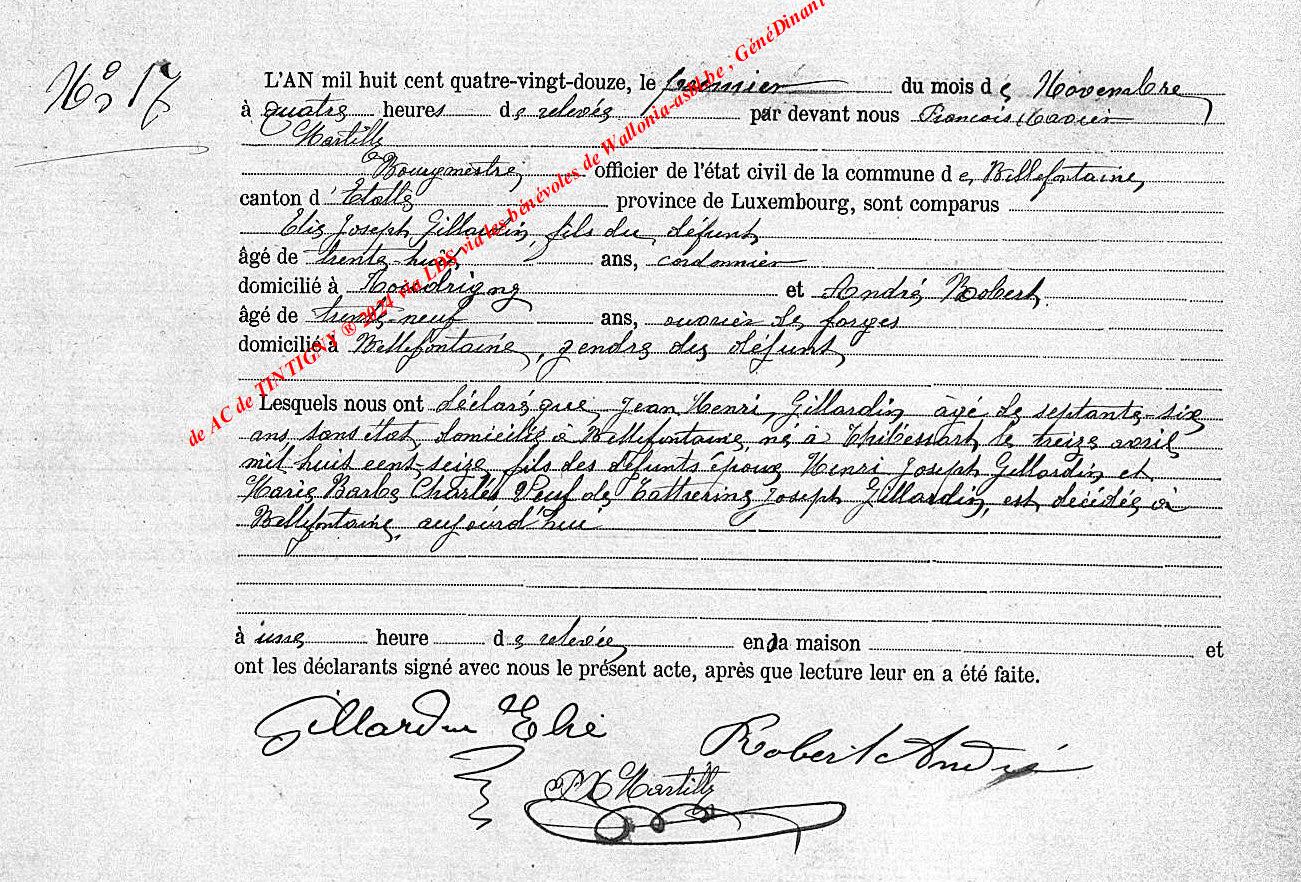 N° 17
L'AN mil huit cent quatre-vingt-douze, le premier du mois de Novembre
à quatre heures de relevée par devant nous François Xavier
Martilly
Bourgmestre, officier de l'état civil de la commune de Bellefontaine,
canton d'Etalle province de Luxembourg, sont comparus
Elie Joseph Gillardin, fils du défunt
âgé de trente-huit ans, cordonnier
domicilié à et André Robert,
âgé de trente-neuf ans, ouvrier de forges
domicilié à Bellefontaine, gendre du défunt,
Lesquels nous ont déclaré que, Jean Henri, Gillardin âgé de septante-six
ans, sans état, domicilié à Bellefontaine, né à Thibessart, le treize avril
mil huit cent-seize, fils des défunts époux Henri Joseph Gillardin et
Marie Barbe Charles Veuf de Catherine Joseph Gillardin, est décédé à
Bellefontaine, aujourd'hui
à une heure de relevée en sa maison et
ont les déclarants signé avec nous le présent acte, après que lecture leur en a été faite.
Gillardin Elie
Robert André
FX Martilly
de AC de TINTIGNY ® 2024 via LDS via les bénévoles de Wallonia-asbl.be , GénéDinant